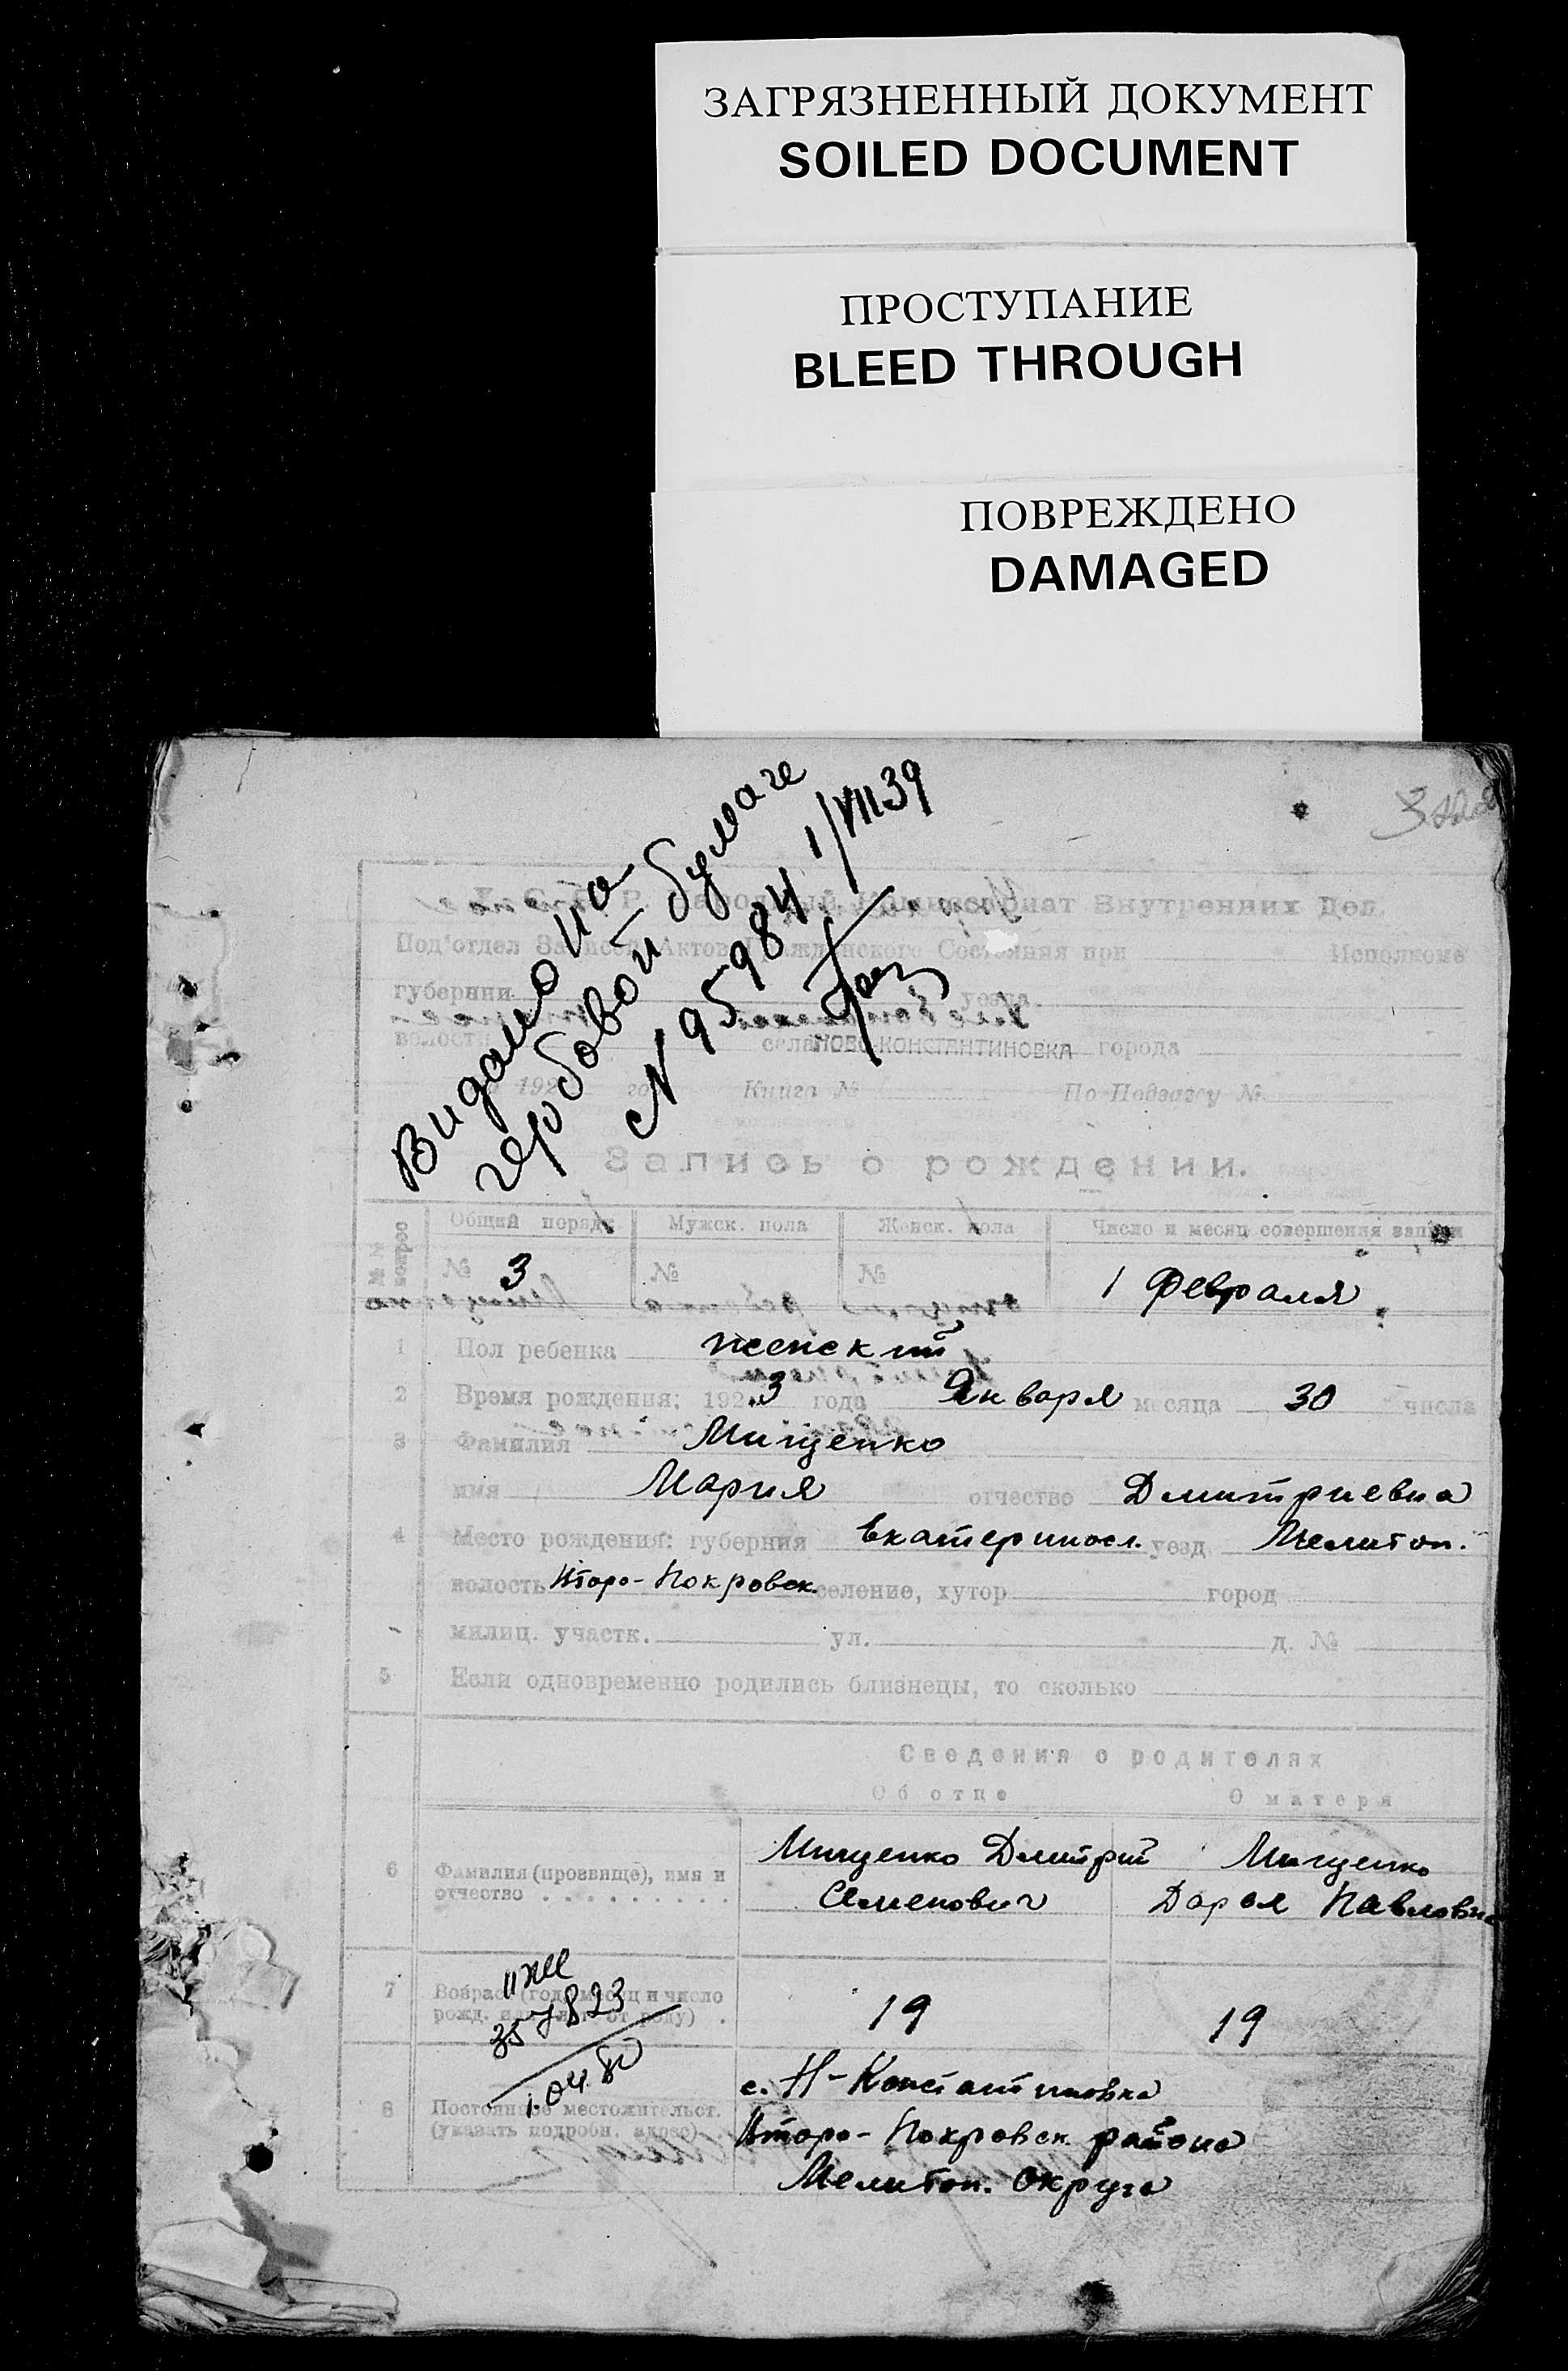 ЗАГРЯЗНЕННЫЙ ДОКУМЕНТ
SOILED DOCUMENT
ПРОСТУПАНИЕ
BLEED THROUGH
ПОВРЕЖДЕНО
DAMAGED
Видано на
гербовой бумаге
N 95984 1/VII 39
У. С. С. Р. Народный Комиссариат Внутренних Дел.
Под'отдел Записей Актов Гражданского Состояния при Исполкоме
губернии уезда
волости села НОВО-КОНСТАНТИНОВКА города
192 го Книга № По Подзагсу №
Запись о рождении.
Общий поряд. Мужск. пола Женск. пола Число и месяц совершения записи
№ 3 № № 1 Февраля
1 Пол ребенка женский
2 Время рождения: 1923 года Января месяца 30 числа
3 Фамилия Мищенко
имя Мария отчество Дмитриевна
4 Место рождения: губерния Екатериносл. уезд Мелитоп.
волость Второ-Покровск. селение, хутор город
милиц. участк. ул. д. №
5 Если одновременно родились близнецы, то сколько
Сведения о родителях
Об отце О матери
6 Фамилия (прозвище), имя и отчество Мищенко Дмитрий Мищенко
Семенович Дарья Павловна
7 Возраст (год, месяц и число
рожд. или лет от роду) 19 19
357823
1.04.80
8 Постоянное местожительст.
(указать подробн. адрес)
с. Н-Константиновка
Второ-Покровск. района
Мелитоп. округа